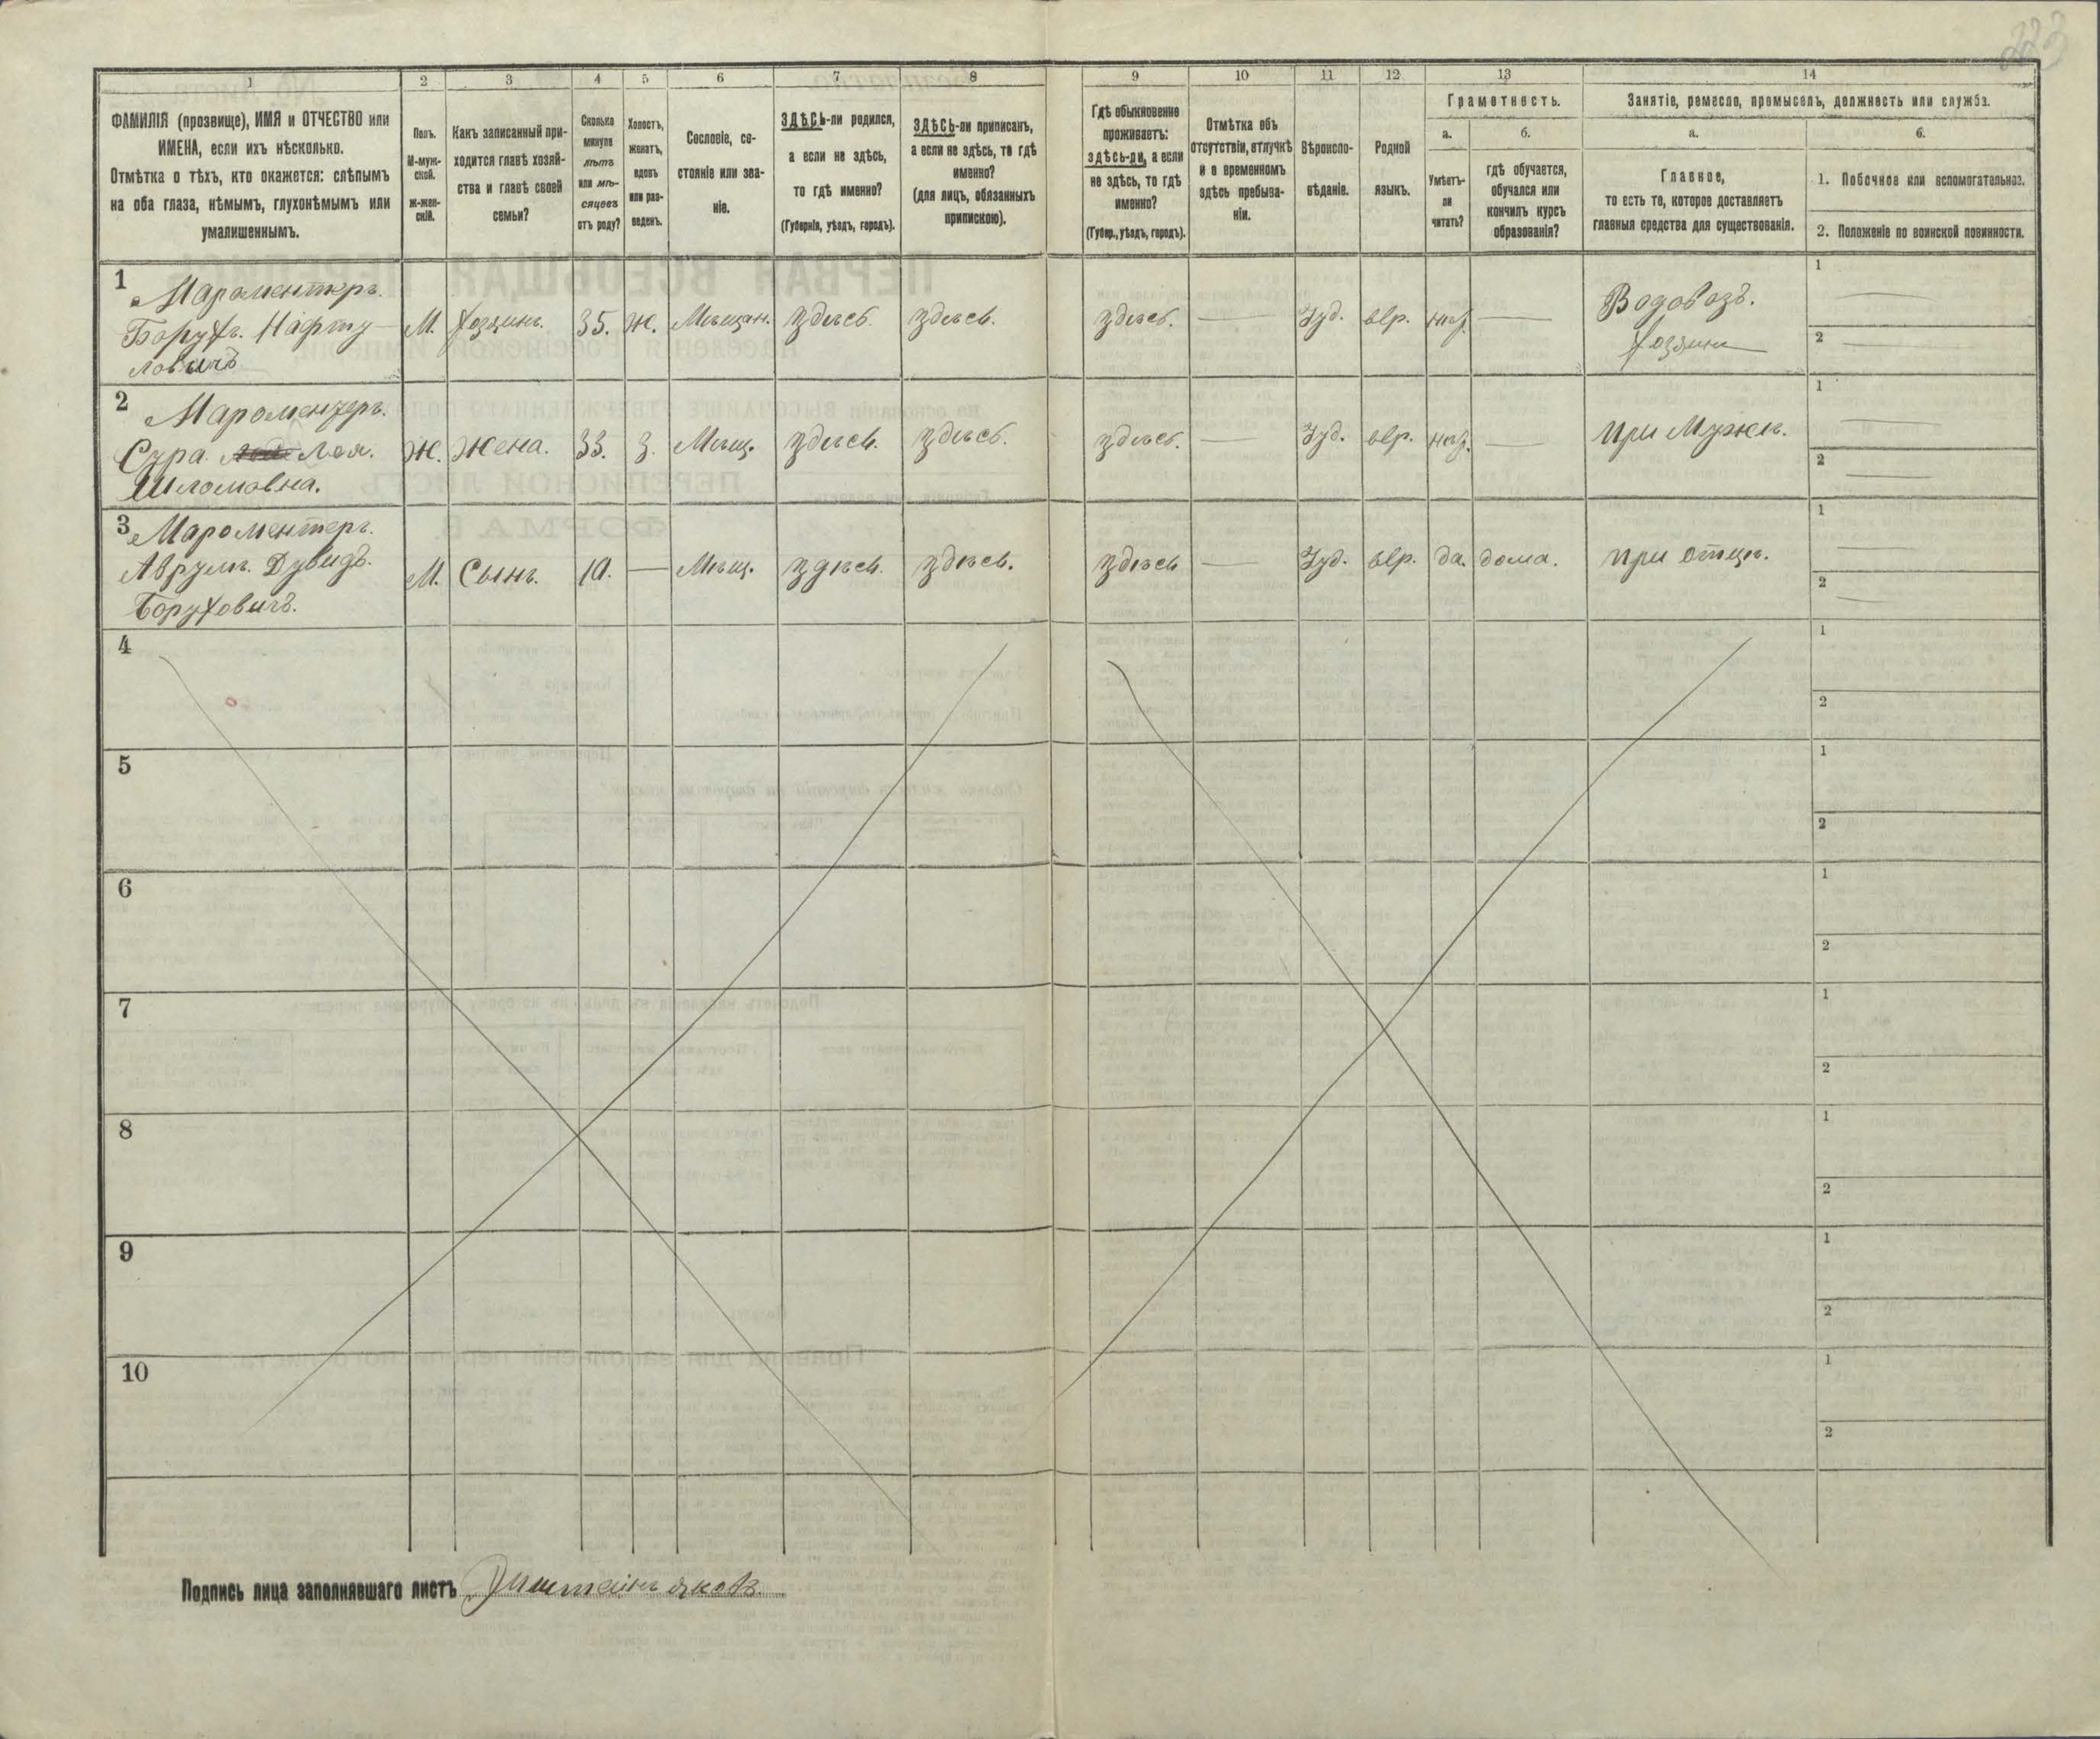 223
1
2
3
4
5
6
7
8
9
10
11
12
13
14
ФАМИЛІЯ (прозвище), ИМЯ и ОТЧЕСТВО или
ИМЕНА, если ихъ нѣсколько.
Отмѣтка о тѣхъ, кто окажется: слѣпымъ
на оба глаза, нѣмымъ, глухонѣмымъ или
умалишеннымъ.
Полъ.
М-муж-
ской.
Ж-жен-
скій.
Какъ записанный при-
ходится главѣ хозяй-
ства и главѣ своей
семьи?
Сколько
минуло
лѣтъ
или мѣ-
сяцевъ
отъ роду?
Холостъ,
женатъ,
вдовъ
или раз-
веденъ.
Сословіе, со-
стояніе или зва-
ніе.
ЗДѢСЬ-ли родился,
а если не здѣсь,
то гдѣ именно?
(Губернія, уѣздъ, городъ).
ЗДѢСЬ-ли приписанъ,
а если не здѣсь, то гдѣ
именно?
(для лицъ, обязанныхъ
припискою).
Гдѣ обыкновенно
проживаетъ:
здѣсь-ли, а если
не здѣсь, то гдѣ
именно?
(Губер., уѣздъ, городъ).
Отмѣтка объ
отсутствіи, отлучкѣ
и о временномъ
здѣсь пребыва-
ніи.
Вѣроиспо-
вѣданіе.
Родной
языкъ.
Грамотность.
а.
Умѣетъ-
ли
читать?
б.
гдѣ обучается,
обучался или
кончилъ курсъ
образованія?
Занятіе, ремесло, промыселъ, должность или служба.
а.
Главное,
то есть то, которое доставляетъ
главныя средства для существованія.
б.
1. Побочное или вспомогательное.
2. Положеніе по воинской повинности.
1
Мароментеръ.
Борухъ. Нафту
ловичъ
М.
Хозяинъ.
35.
Ж.
Мѣщан.
здѣсь.
здѣсь.
здѣсь.
Іуд.
евр.
Водовозъ.
Хозяинъ
1
2
2
Мароментеръ.
Сура Лея.
Шломовна.
Ж.
Жена.
33.
З.
Мѣщ.
здѣсь.
здѣсь.
здѣсь.
Іуд.
евр.
при Мужѣ.
1
2
3
Мароментеръ.
Аврумъ. Дувидъ.
Боруховичъ.
М.
Сынъ.
10.
Мѣщ.
здѣсь.
здѣсь.
здѣсь
Іуд.
евр.
да.
дома.
при отцѣ.
1
2
4
1
2
5
1
2
6
1
2
7
1
2
8
1
2
9
1
2
10
1
2
Подпись лица заполнявшаго листъ